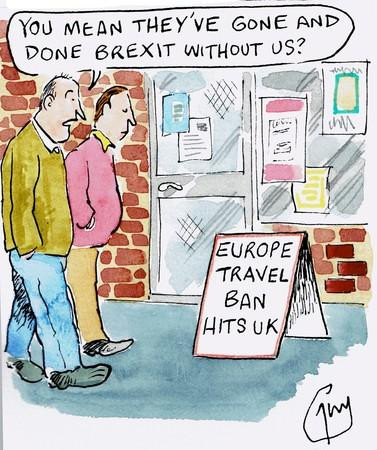 YOU MEAN THEY'VE GONE AND
DONE BREXIT WITHOUT US?
EUROPE
TRAVEL
BAN
HITS UK
Guy